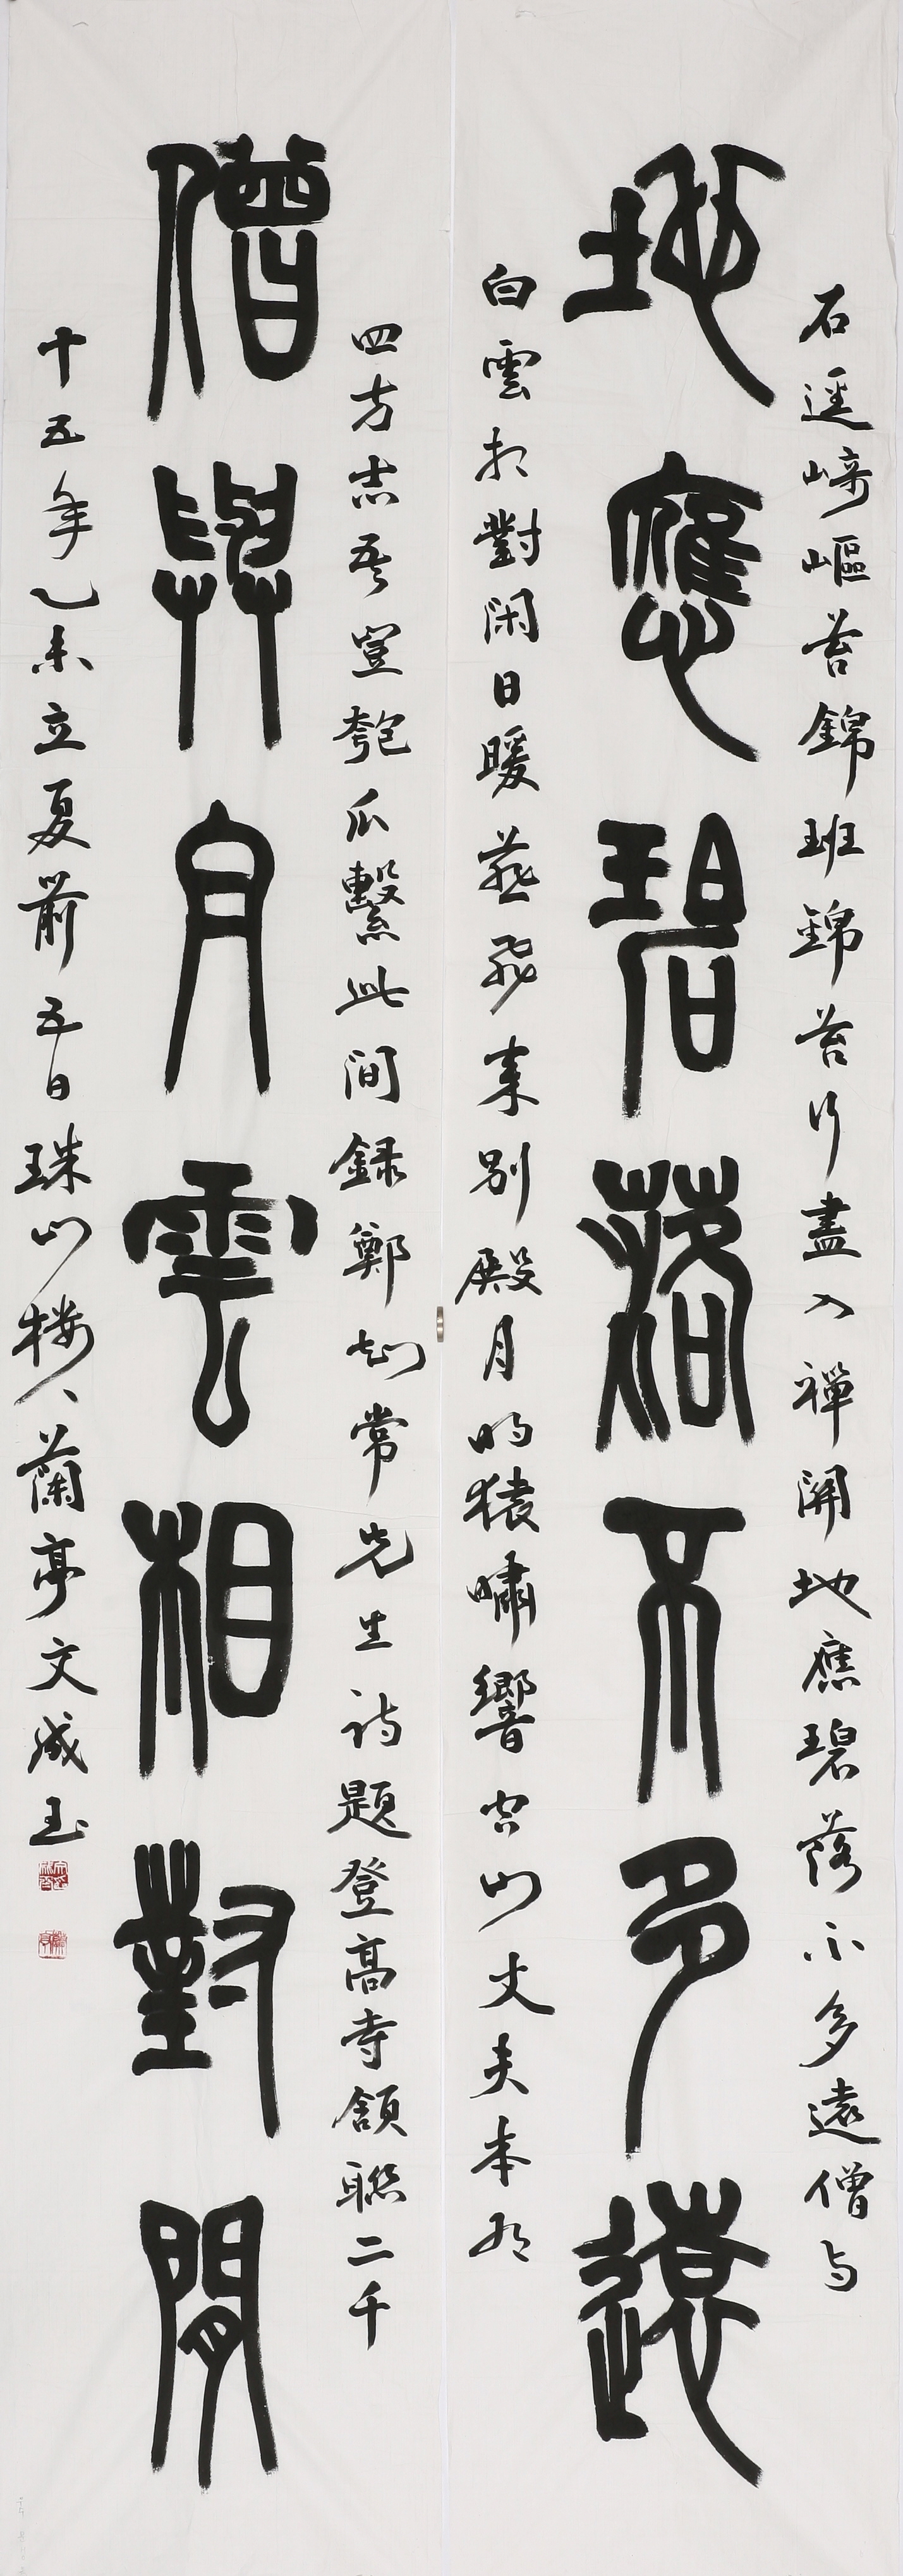 石逕崎嶇苔錦班錦苔行盡入禪關地應碧落不多遠僧与
地應碧落不多遠
白雲相對閑日暖燕飛來別殿月明猿嘯響空山丈夫本有
四方志吾豈匏瓜繫此間錄鄭知常先生詩題登高寺頷聯二千
僧與白雲相對閒
十五年乙未立夏前五日珠山樓人蘭亭文成玉